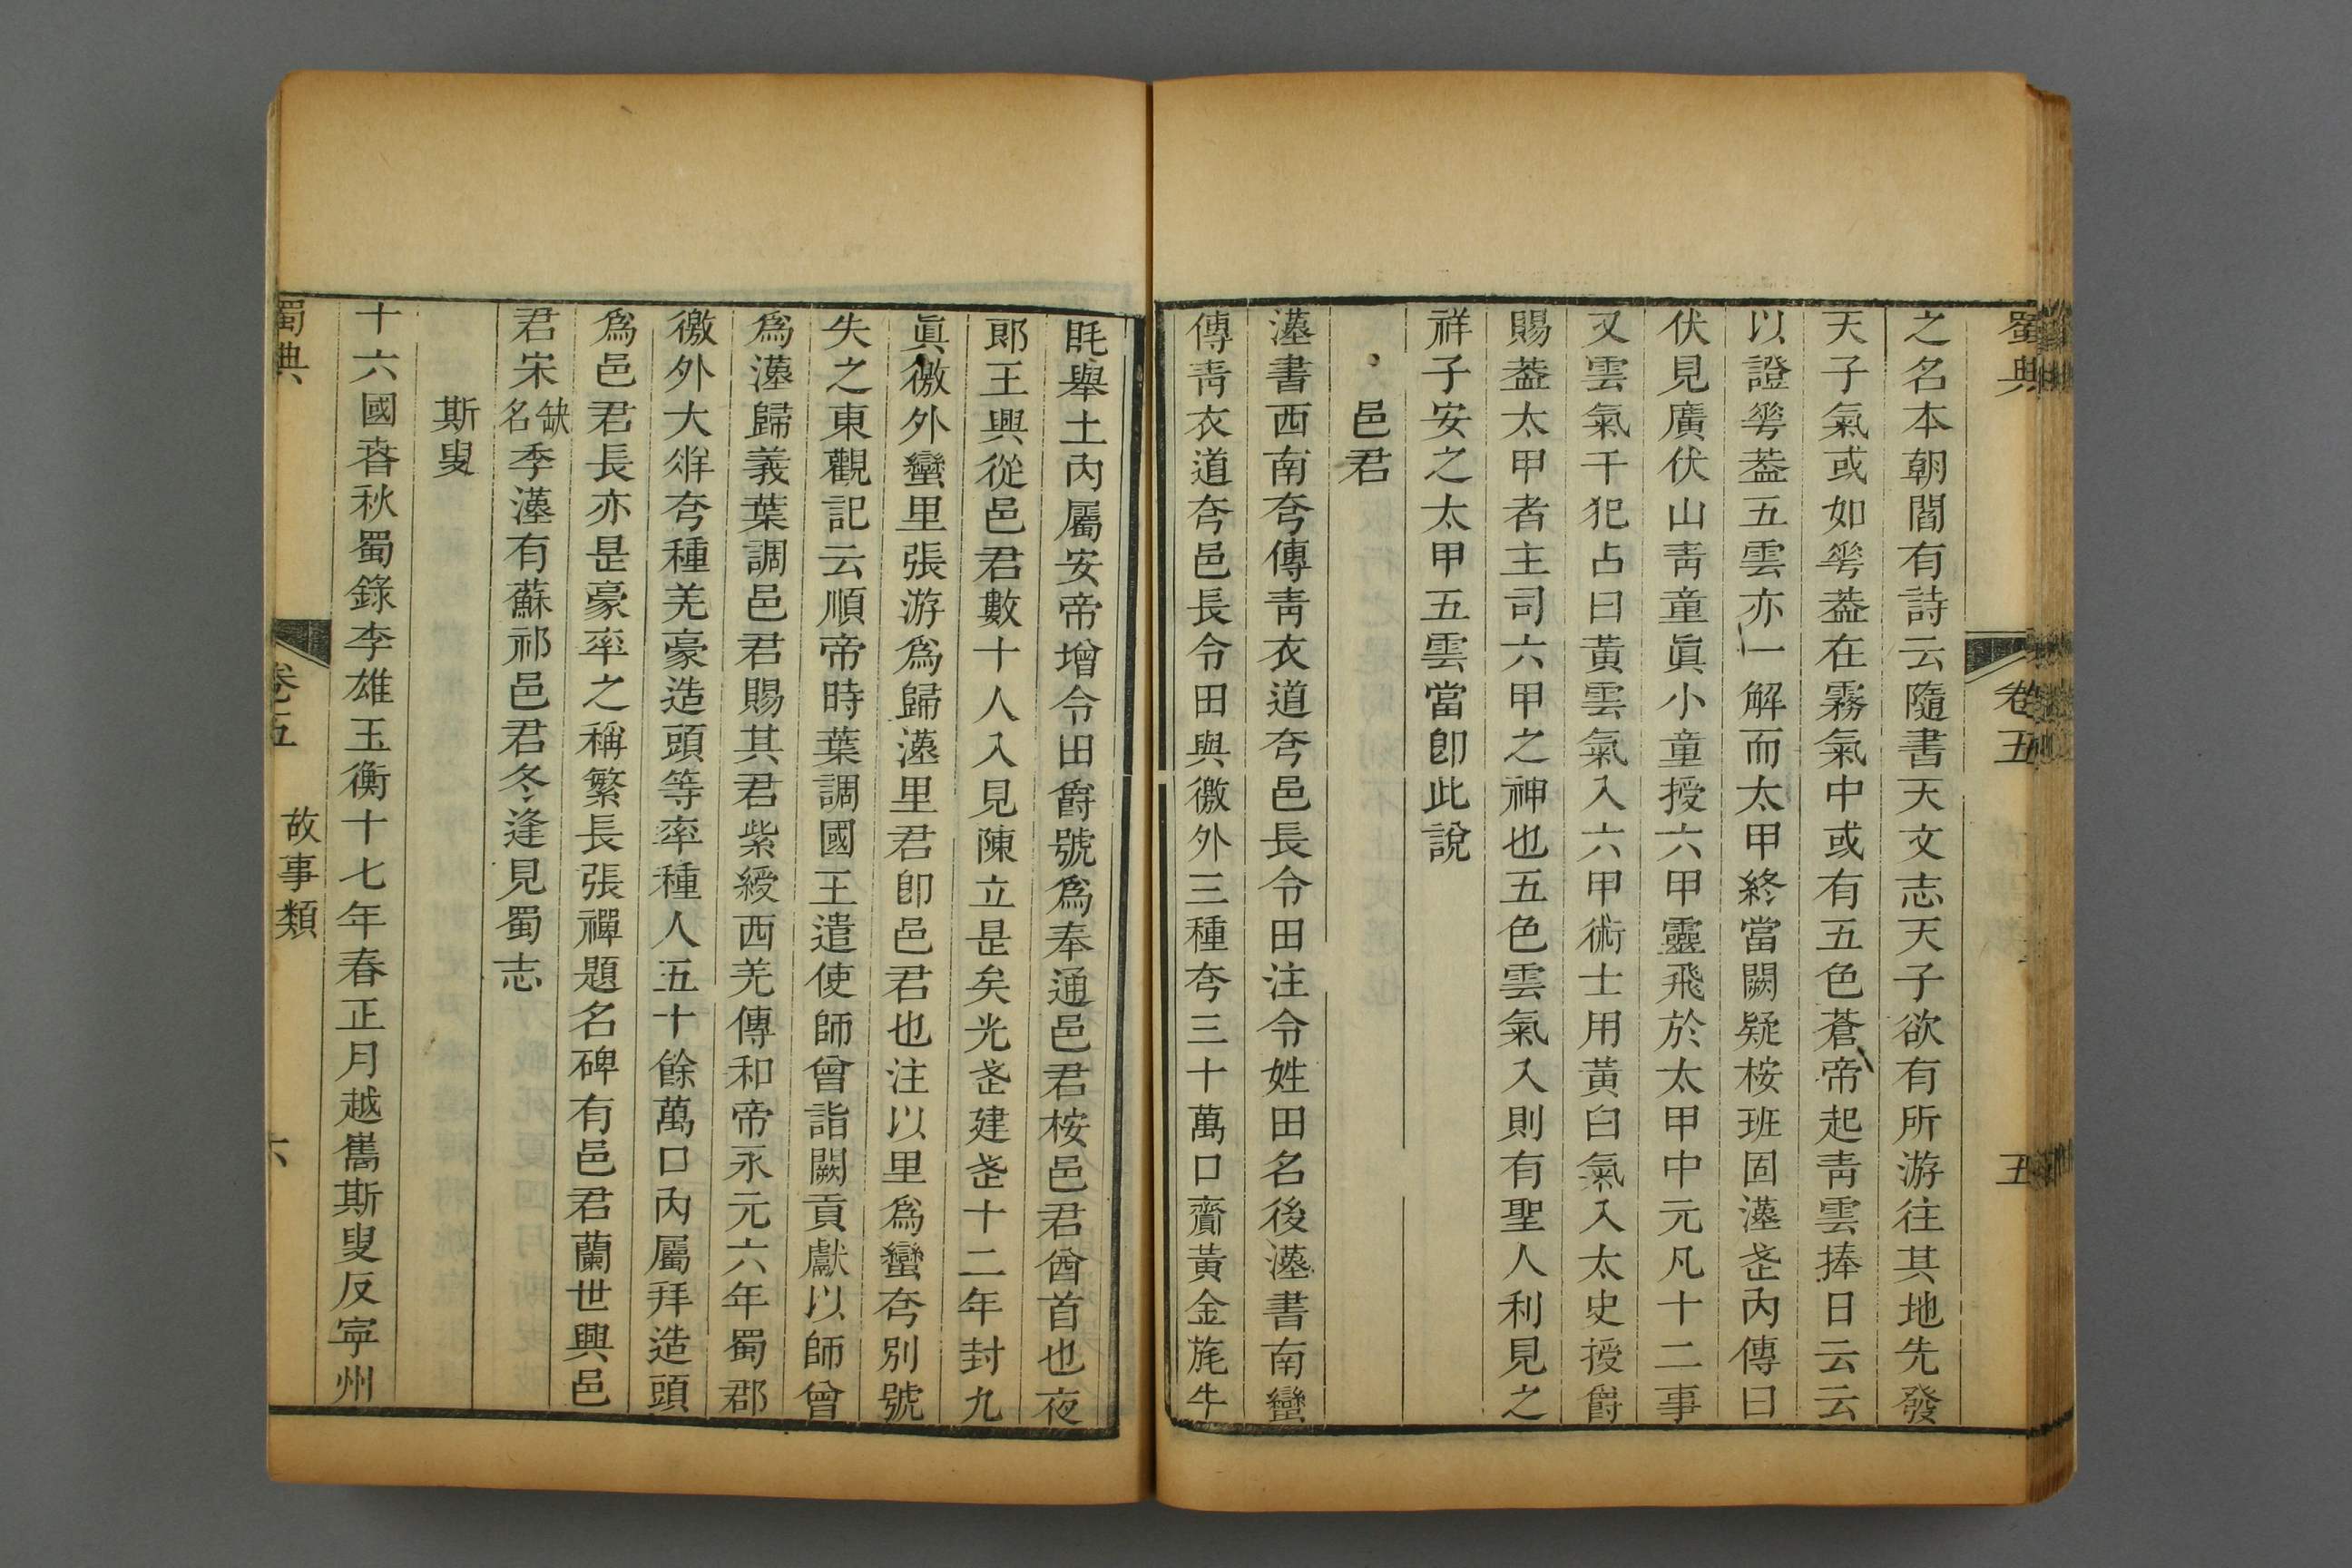 蜀典 卷五 五
之名本朝閻有詩云隨書天文志天子欲有所游往其地先發
天子氣或如𠌶葢在霧氣中或有五色蒼帝起靑雲捧日云云
以證𠌶葢五雲亦一解而太甲終當闕疑桉班固漢武內傳曰
伏見廣伏山靑童眞小童授六甲靈飛於太甲中元凡十二事
又雲氣干犯占曰黃雲氣入六甲術士用黃白氣入太史授爵
賜葢太甲者主司六甲之神也五色雲氣入則有聖人利見之
祥子安之太甲五雲當卽此說
邑君
漢書西南夷傳靑衣道夷邑長令田注令姓田名後漢書南蠻
傳靑衣道夷邑長令田與徼外三種夷三十萬口齎黃金旄牛
毦舉土內屬安帝增令田爵號爲奉通邑君桉邑君酋首也夜
郎王興從邑君數十人入見陳立是矣光武建武十二年封九
眞徼外蠻里張游爲歸漢里君卽邑君也注以里爲蠻夷別號
失之東觀記云順帝時葉調國王遣使師會詣闕貢獻以師會
爲漢歸義葉調邑君賜其君紫綬西羌傳和帝永元六年蜀郡
徼外大牂夷種羌豪造頭等率種人五十餘萬口內屬拜造頭
爲邑君長亦是豪率之稱繁長張禪題名碑有邑君蘭世興邑
君宋缺名季漢有蘇祁邑君冬逢見蜀志
斯叟
十六國春秋蜀錄李雄玉衡十七年春正月越巂斯叟反寜州
蜀典 卷五 故事類 六